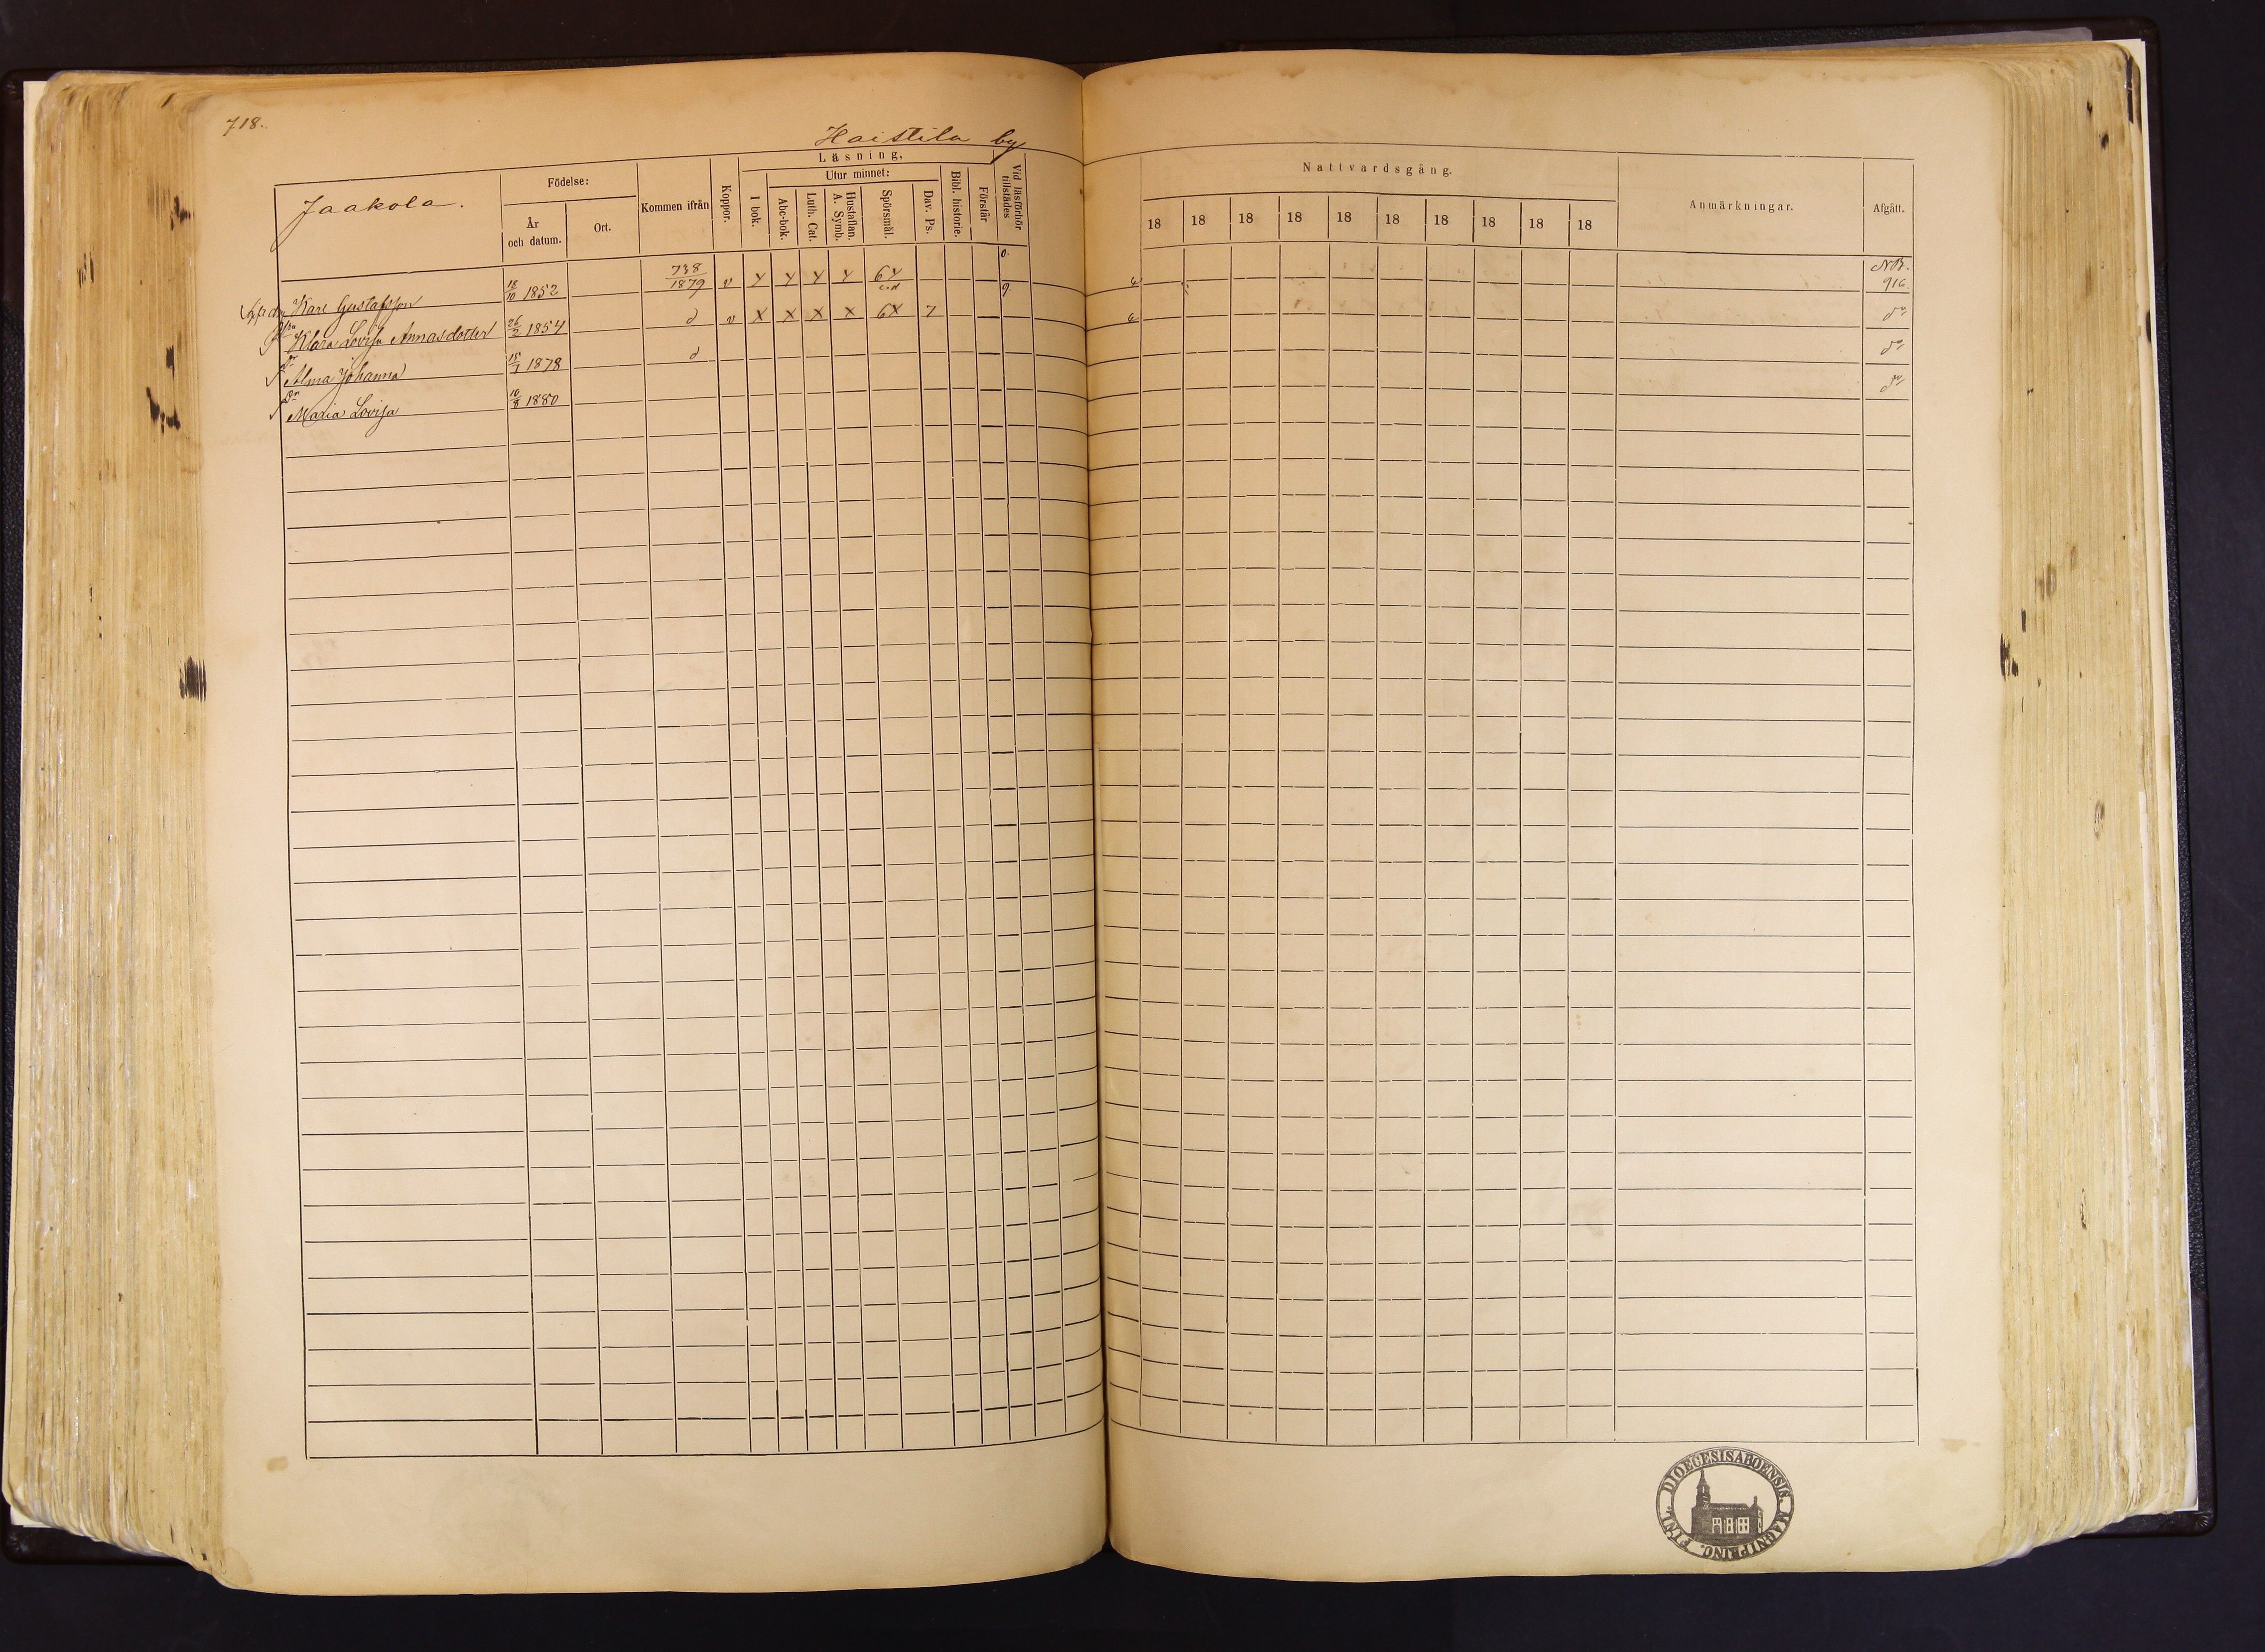 718.
Haistila by
Jaakola.
Födelse:
År och datum.
Ort.
Kommen ifrån
Koppor.
Läsning,
I bok.
Utur minnet:
Abc-bok.
Luth. Cat.
Hustaflan. A. Symb.
Spörsmål.
Dav. Ps.
Bibl. historie.
Förstår
Vid läsförhör tillstädes
Nattvardsgång.
18 18 18 18 18 18 18 18 18 18
Anmärkningar.
Afgått.
Karl Gustafsson 18/10 1852 738/1879 v 6 NB. 916.
Klara Lovisa Annasdotter 26/2 1854 d v x x x x 6x 7 6 do
Dr Alma Johanna 15/7 1878 d do
Dr Maria Lovisa 10/8 1880 do
DIOECESIS ABOENSIS. MAGNI PRINC. FINL.